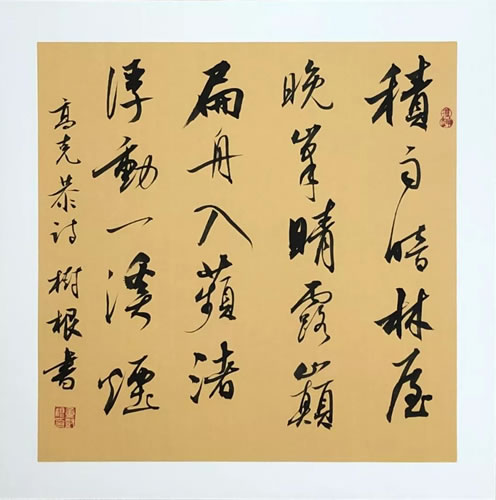 積雨暗林屋
晚峯晴露巔
扁舟入蘋渚
浮動一溪煙
高克恭詩 樹根書